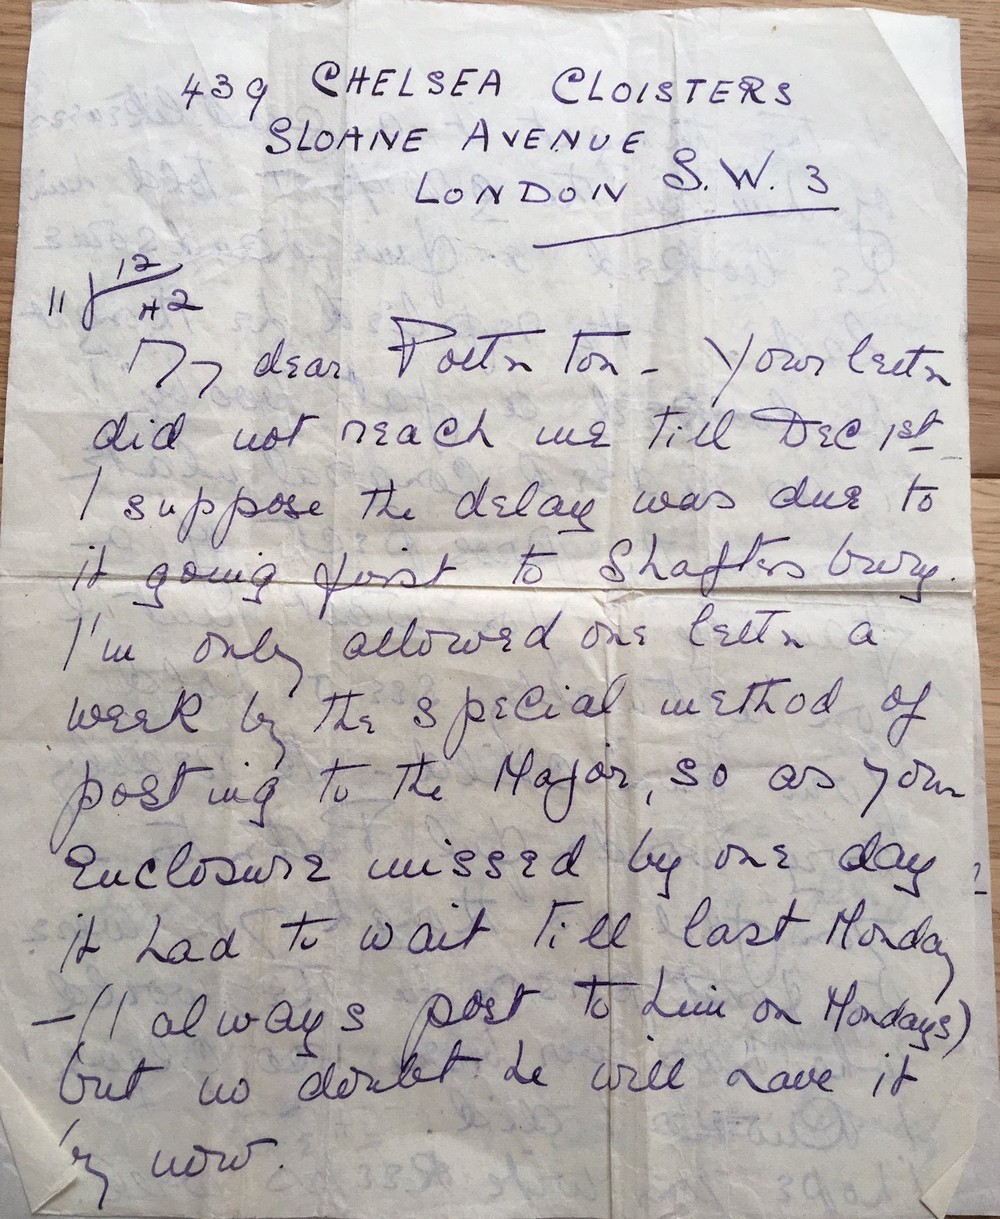 439 CHELSEA CLOISTERS
SLOANE AVENUE
LONDON S.W. 3
11/12/42
My dear Potter Ton - Your letter
did not reach me till Dec 1st
I suppose the delay was due to
it going first to Shaftesbury.
I'm only allowed one letter a
week by the special method of
posting to the Major, so as your
Enclosure missed by one day
it had to wait till last Monday
- (I always post to him on Mondays)
but no doubt he will have it
by now.